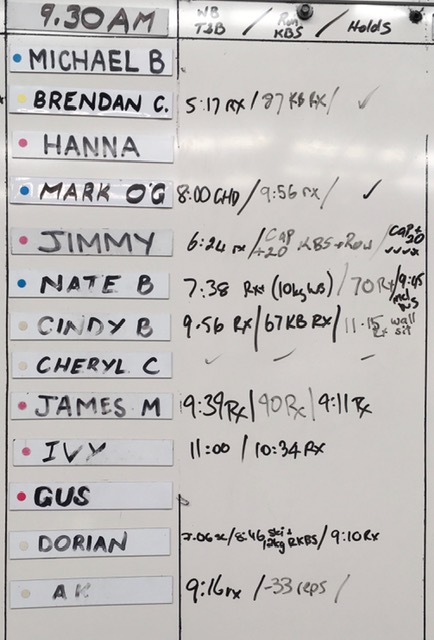 9.30 AM WB T2B / Run KBS / Holds
MICHAEL B
BRENDAN C. 5:17 RX / 87 KB RX / ✓
HANNA
MARK O'G 8:00 GHD / 9:56 rx / ✓
JIMMY 6:24 rx / CAP +20 KBS + Row / CAP + 20 ✓✓✓✓
NATE B 7:38 Rx (10kg WB) / 70 Rx / 9:45
CINDY B 9.56 Rx / 67 KB RX / 11.15 Rx wall sit
CHERYL C ✓ – –
JAMES M 9:39 Rx / 90 Rx / 9:11 Rx
IVY 11:00 / 10:34 RX
GUS
DORIAN 7.06 / 8:46 ski + 12kg RKBS / 9:10 RX
AK 9:16 rx / -33 reps /